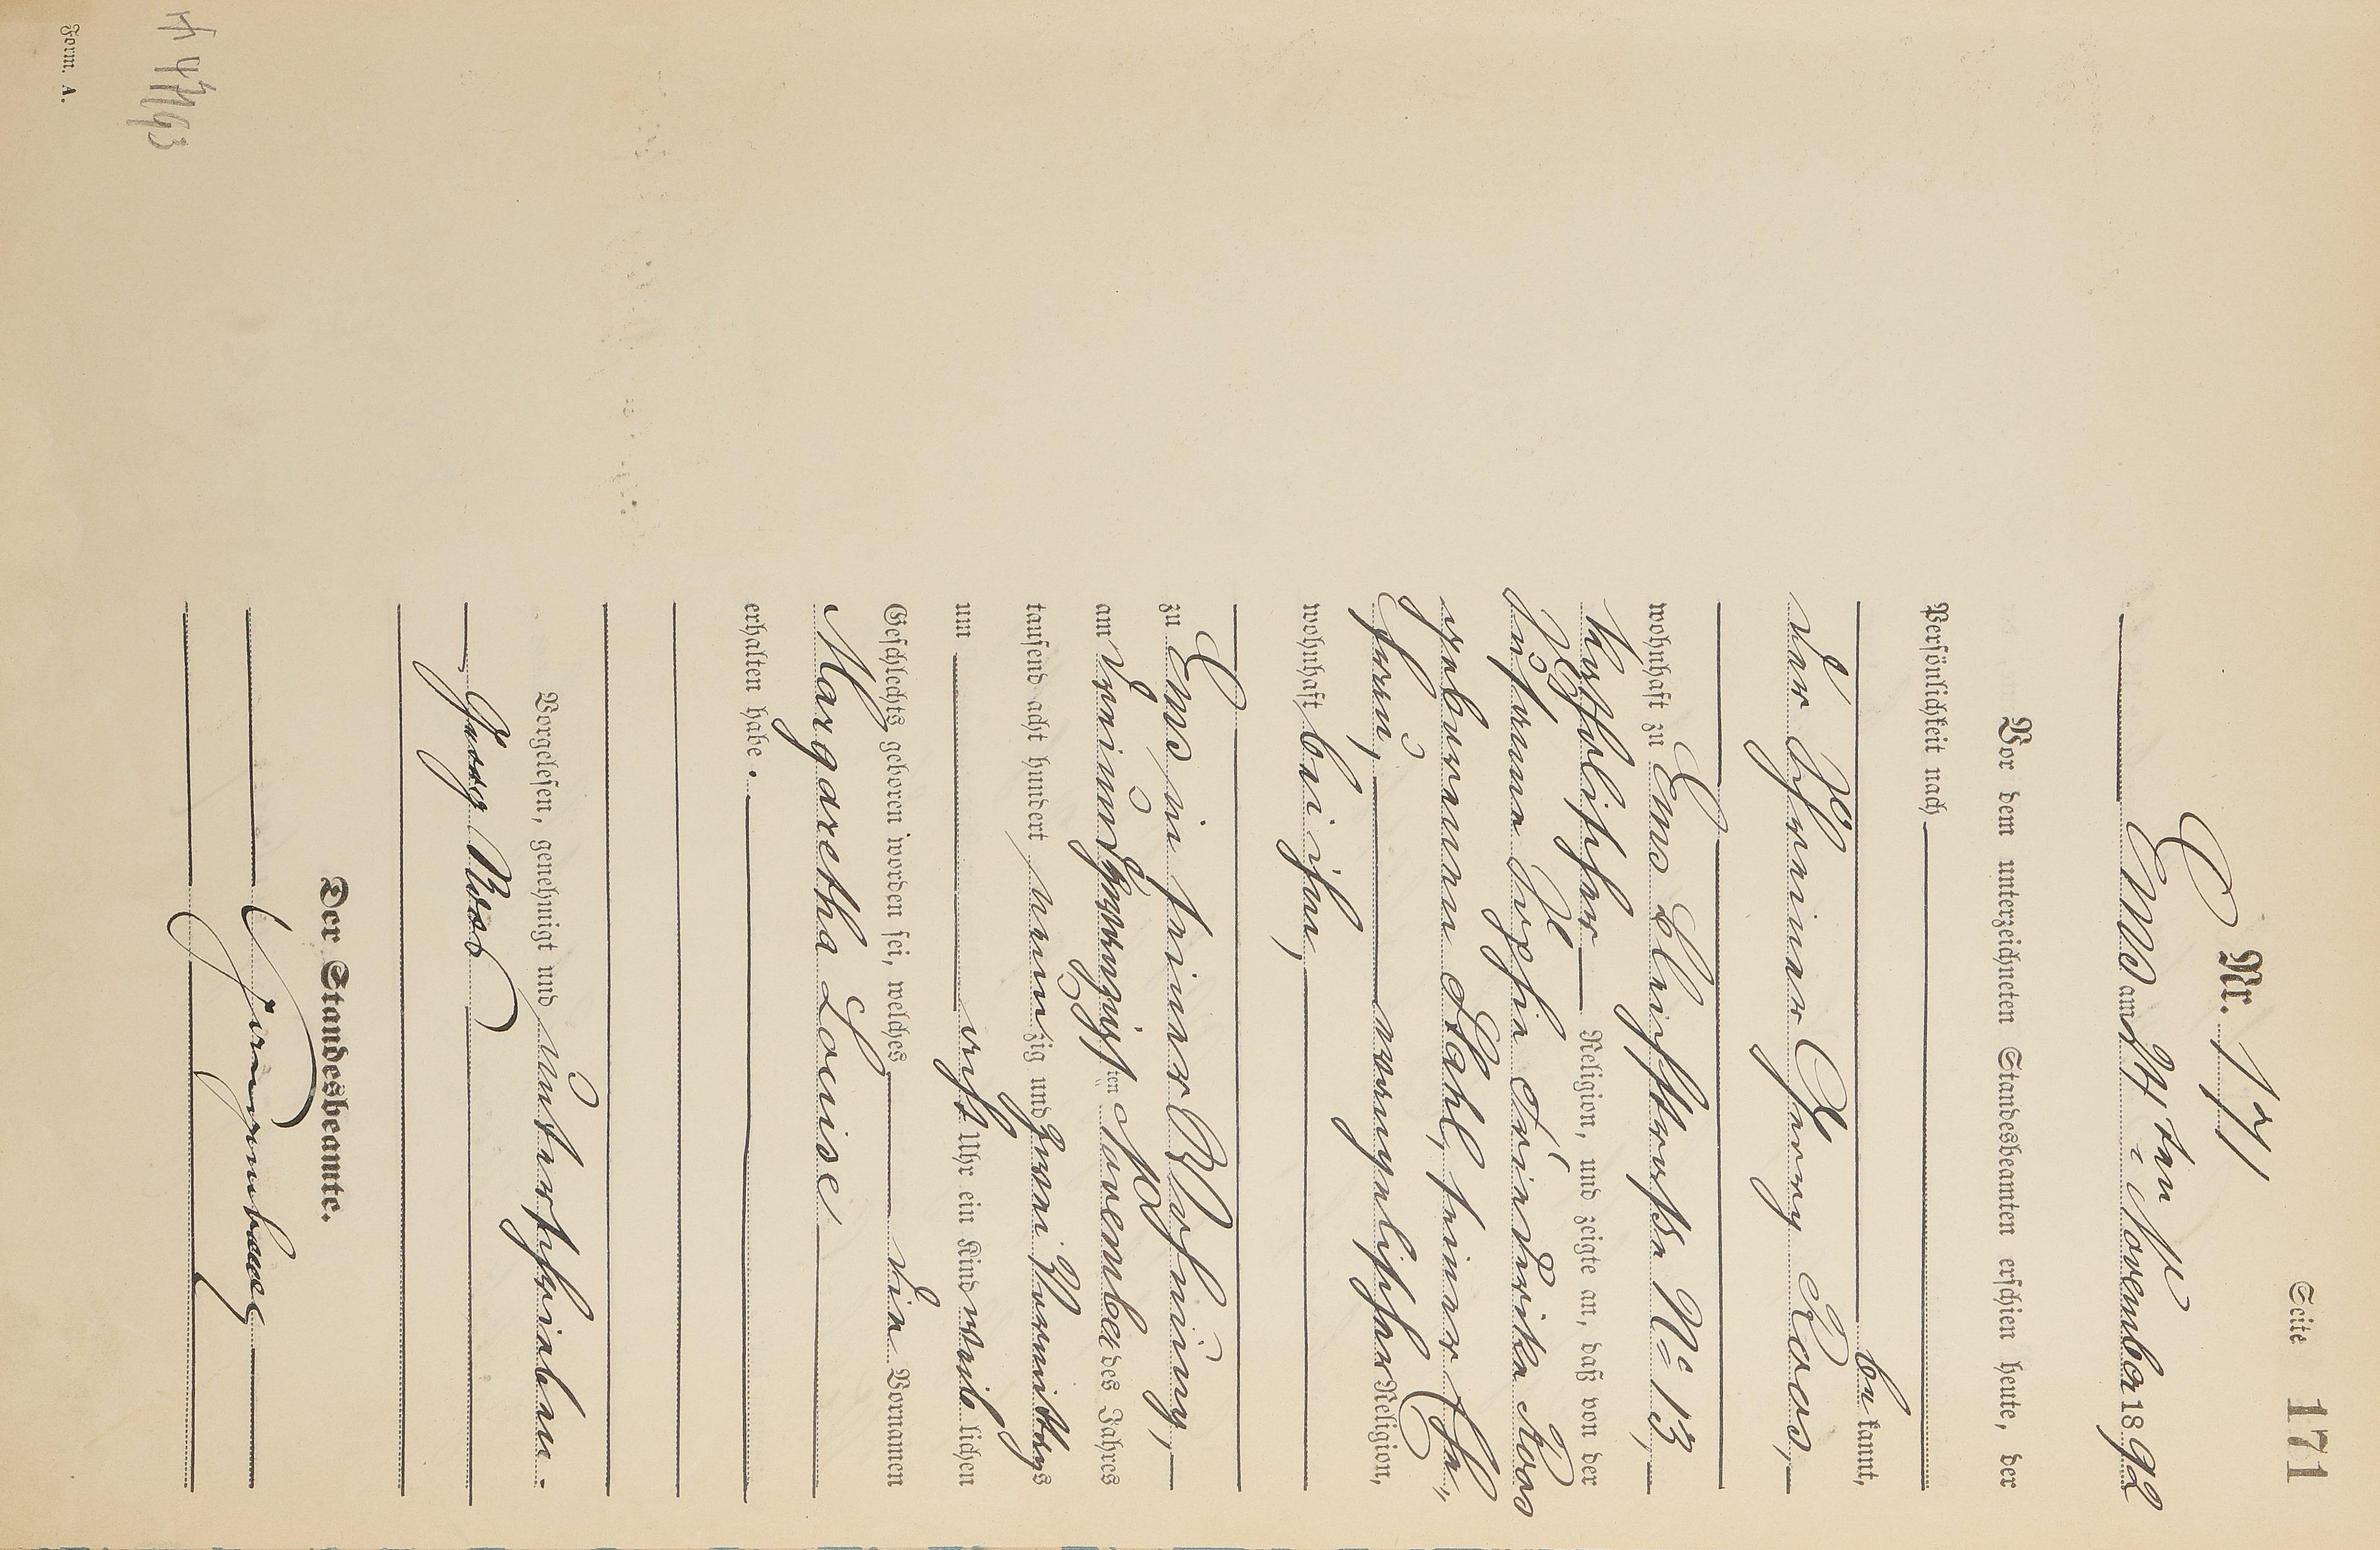 Seite 171
C
Nr. 171
Ems am 24ten November 1892
Vor dem unterzeichneten Standesbeamten erschien heute, der
Persönlichkeit nach
bekannt,
der Schreiner Georg Roos,
wohnhaft zu Ems Bleichstraße No 13,
katholischer Religion, und zeigte an, daß von der
Johanna Sophie Friederike Roos
geborenen Stahl, seiner Ehe„
frau,
evangelischer Religion,
wohnhaft bei ihm,
zu Ems in seiner Wohnung,
am dreiundzwanzigsten November des Jahres
tausend acht hundert neunzig und zwei Vormittags
um acht Uhr ein Kind weiblichen
Geschlechts geboren worden sei, welches die Vornamen
Margaretha Louise
erhalten habe.
Vorgelesen, genehmigt und unterschrieben.
Georg Roos
Der Standesbeamte.
Form. A.